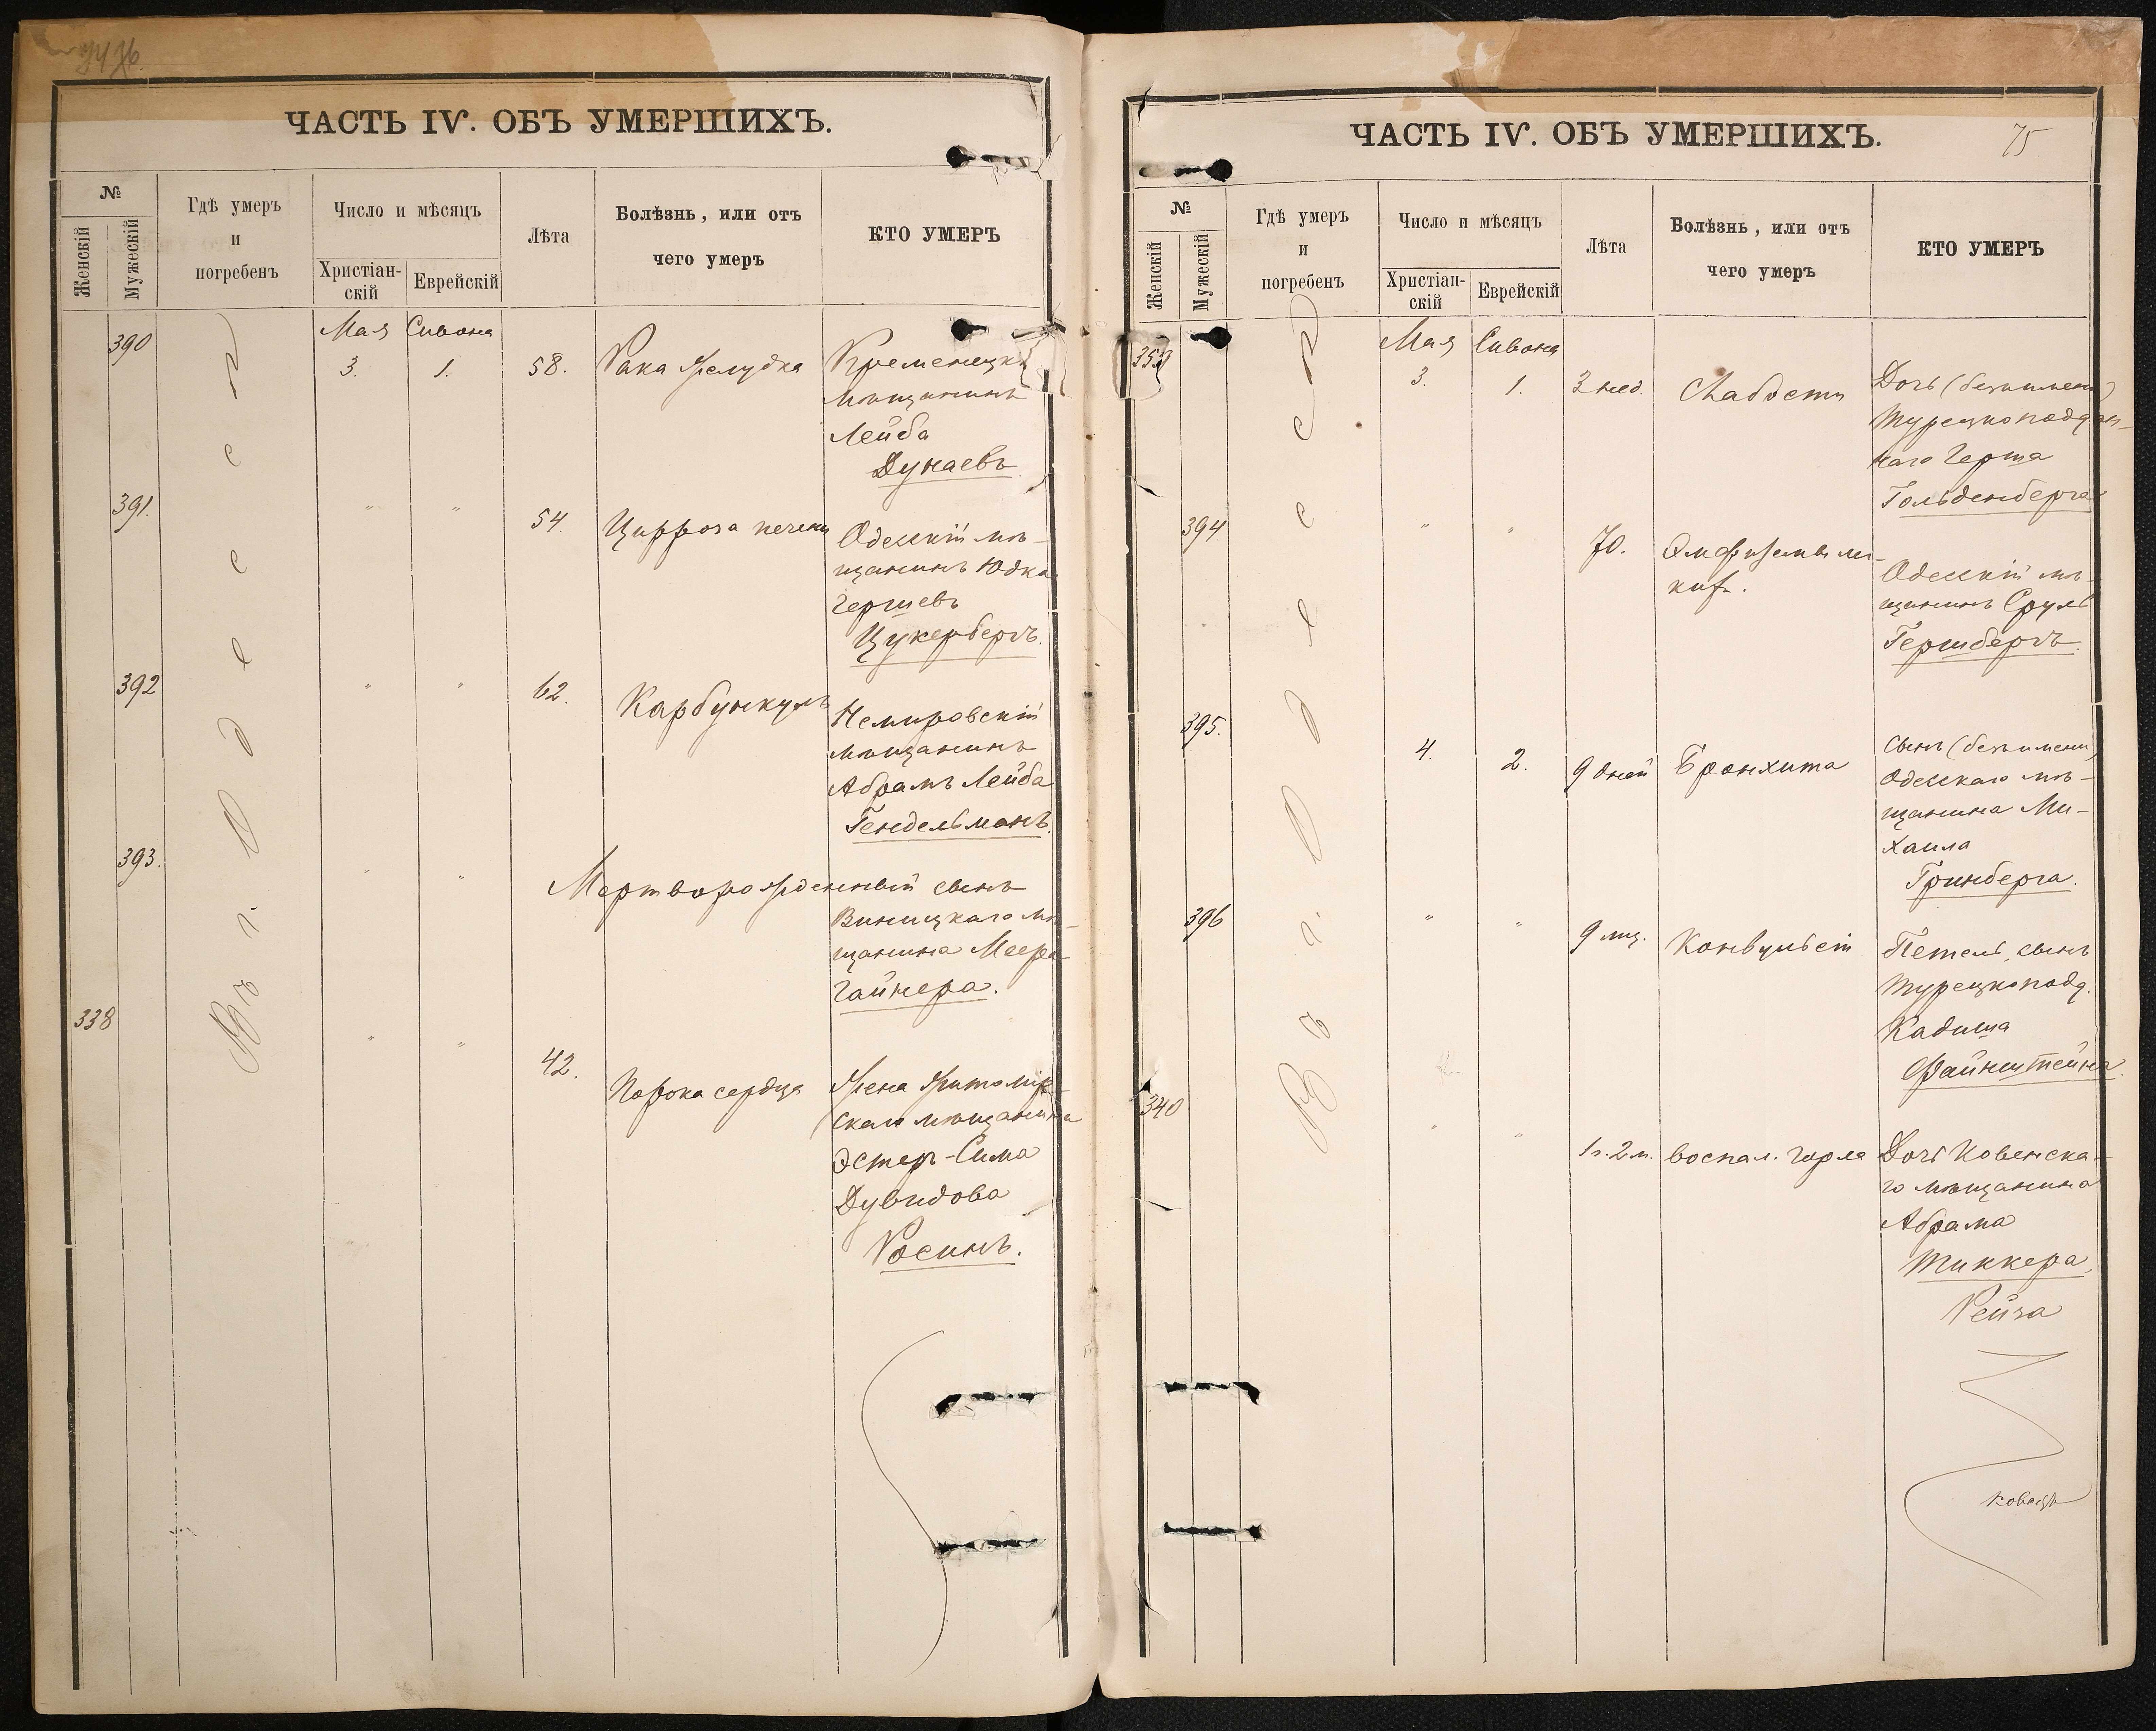 ЧАСТЬ IV. ОБЪ УМЕРШИХЪ.
№
Женскій
Мужескій
Гдѣ умеръ
и
погребенъ
Число и мѣсяцъ
Христіан-
скій
Еврейскій
Лѣта
Болѣзнь, или отъ
чего умеръ
КТО УМЕРЪ
Въ г. Одессѣ
Мая Сивона
390 3. 1. 58. Рака желудка Кременецкі
мѣщанинъ
Лейба
Дунаевъ
391. " " 54. Цирроза печени Одесскій мѣ-
щанинъ Юдка
Гершевъ
Цукербергъ.
392 " " 62. Карбункулъ Немировскій
мѣщанинъ
Абрамъ Лейба
Гендельманъ.
393. " " Мертворожденный сынъ
Виницкаго мѣ-
щанина Меера
Гайнера.
338 " " 42. Порока сердца Жена Житомир-
скаго мѣщанина
Эстеръ-Сима
Дувидова
Росинъ.
ЧАСТЬ IV. ОБЪ УМЕРШИХЪ.
75
№
Женскій
Мужескій
Гдѣ умеръ
и
погребенъ
Число и мѣсяцъ
Христіан-
скій
Еврейскій
Лѣта
Болѣзнь, или отъ
чего умеръ
КТО УМЕРЪ
Въ г. Одессѣ
Мая Сивона
3. 1. 3 нед. Слабости Дочь (безъ имени)
Турецкоподдан-
наго Герша
Гольденберга
394. " " 70. Эмфиземы лег-
кихъ. Одесскій мѣ-
щанинъ Сруль
Гершбергъ.
395. 4. 2. 9 дней Бронхита Сынъ (безъ имени)
Одесскаго мѣ-
щанина Ми-
хаила
Гринберга.
396 " " 9 мц. Конвульсіи Петель, сынъ
Турецкоподд.
Кадиша
Файнштейна.
340 " " 1 г. 2 м. воспал. горла Дочь Ковенска-
го мѣщанина
Абрама
Тиккера,
Рейза